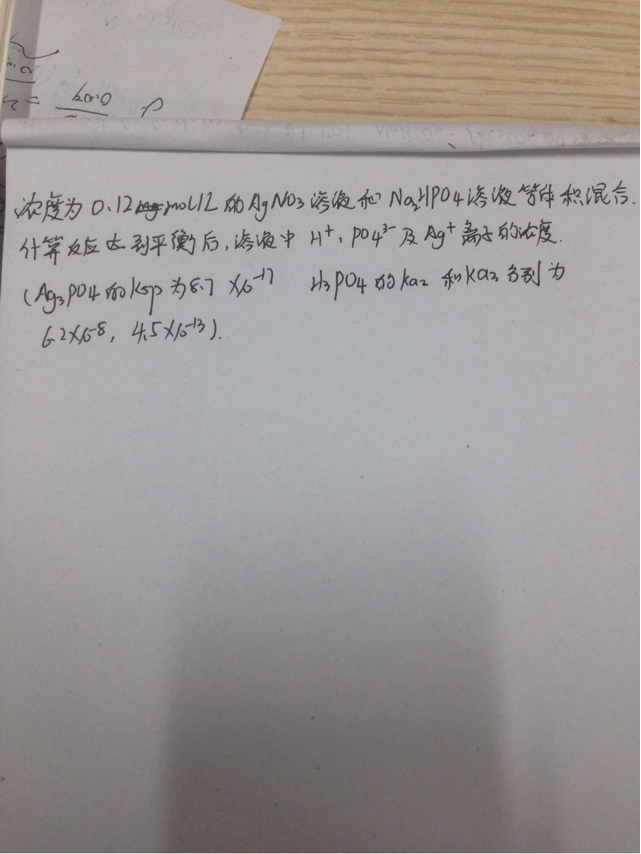 浓度为 0.12 mol/L 的 AgNO3 溶液和 Na2HPO4 溶液等体积混合.
计算反应达到平衡后,溶液中 H+、PO4³⁻ 及 Ag+ 离子的浓度.
(Ag3PO4 的 Ksp 为 8.7 ×10⁻¹⁷ H3PO4 的 ka2 和 ka3 分别为
6.2×10⁻⁸, 4.5×10⁻¹³).